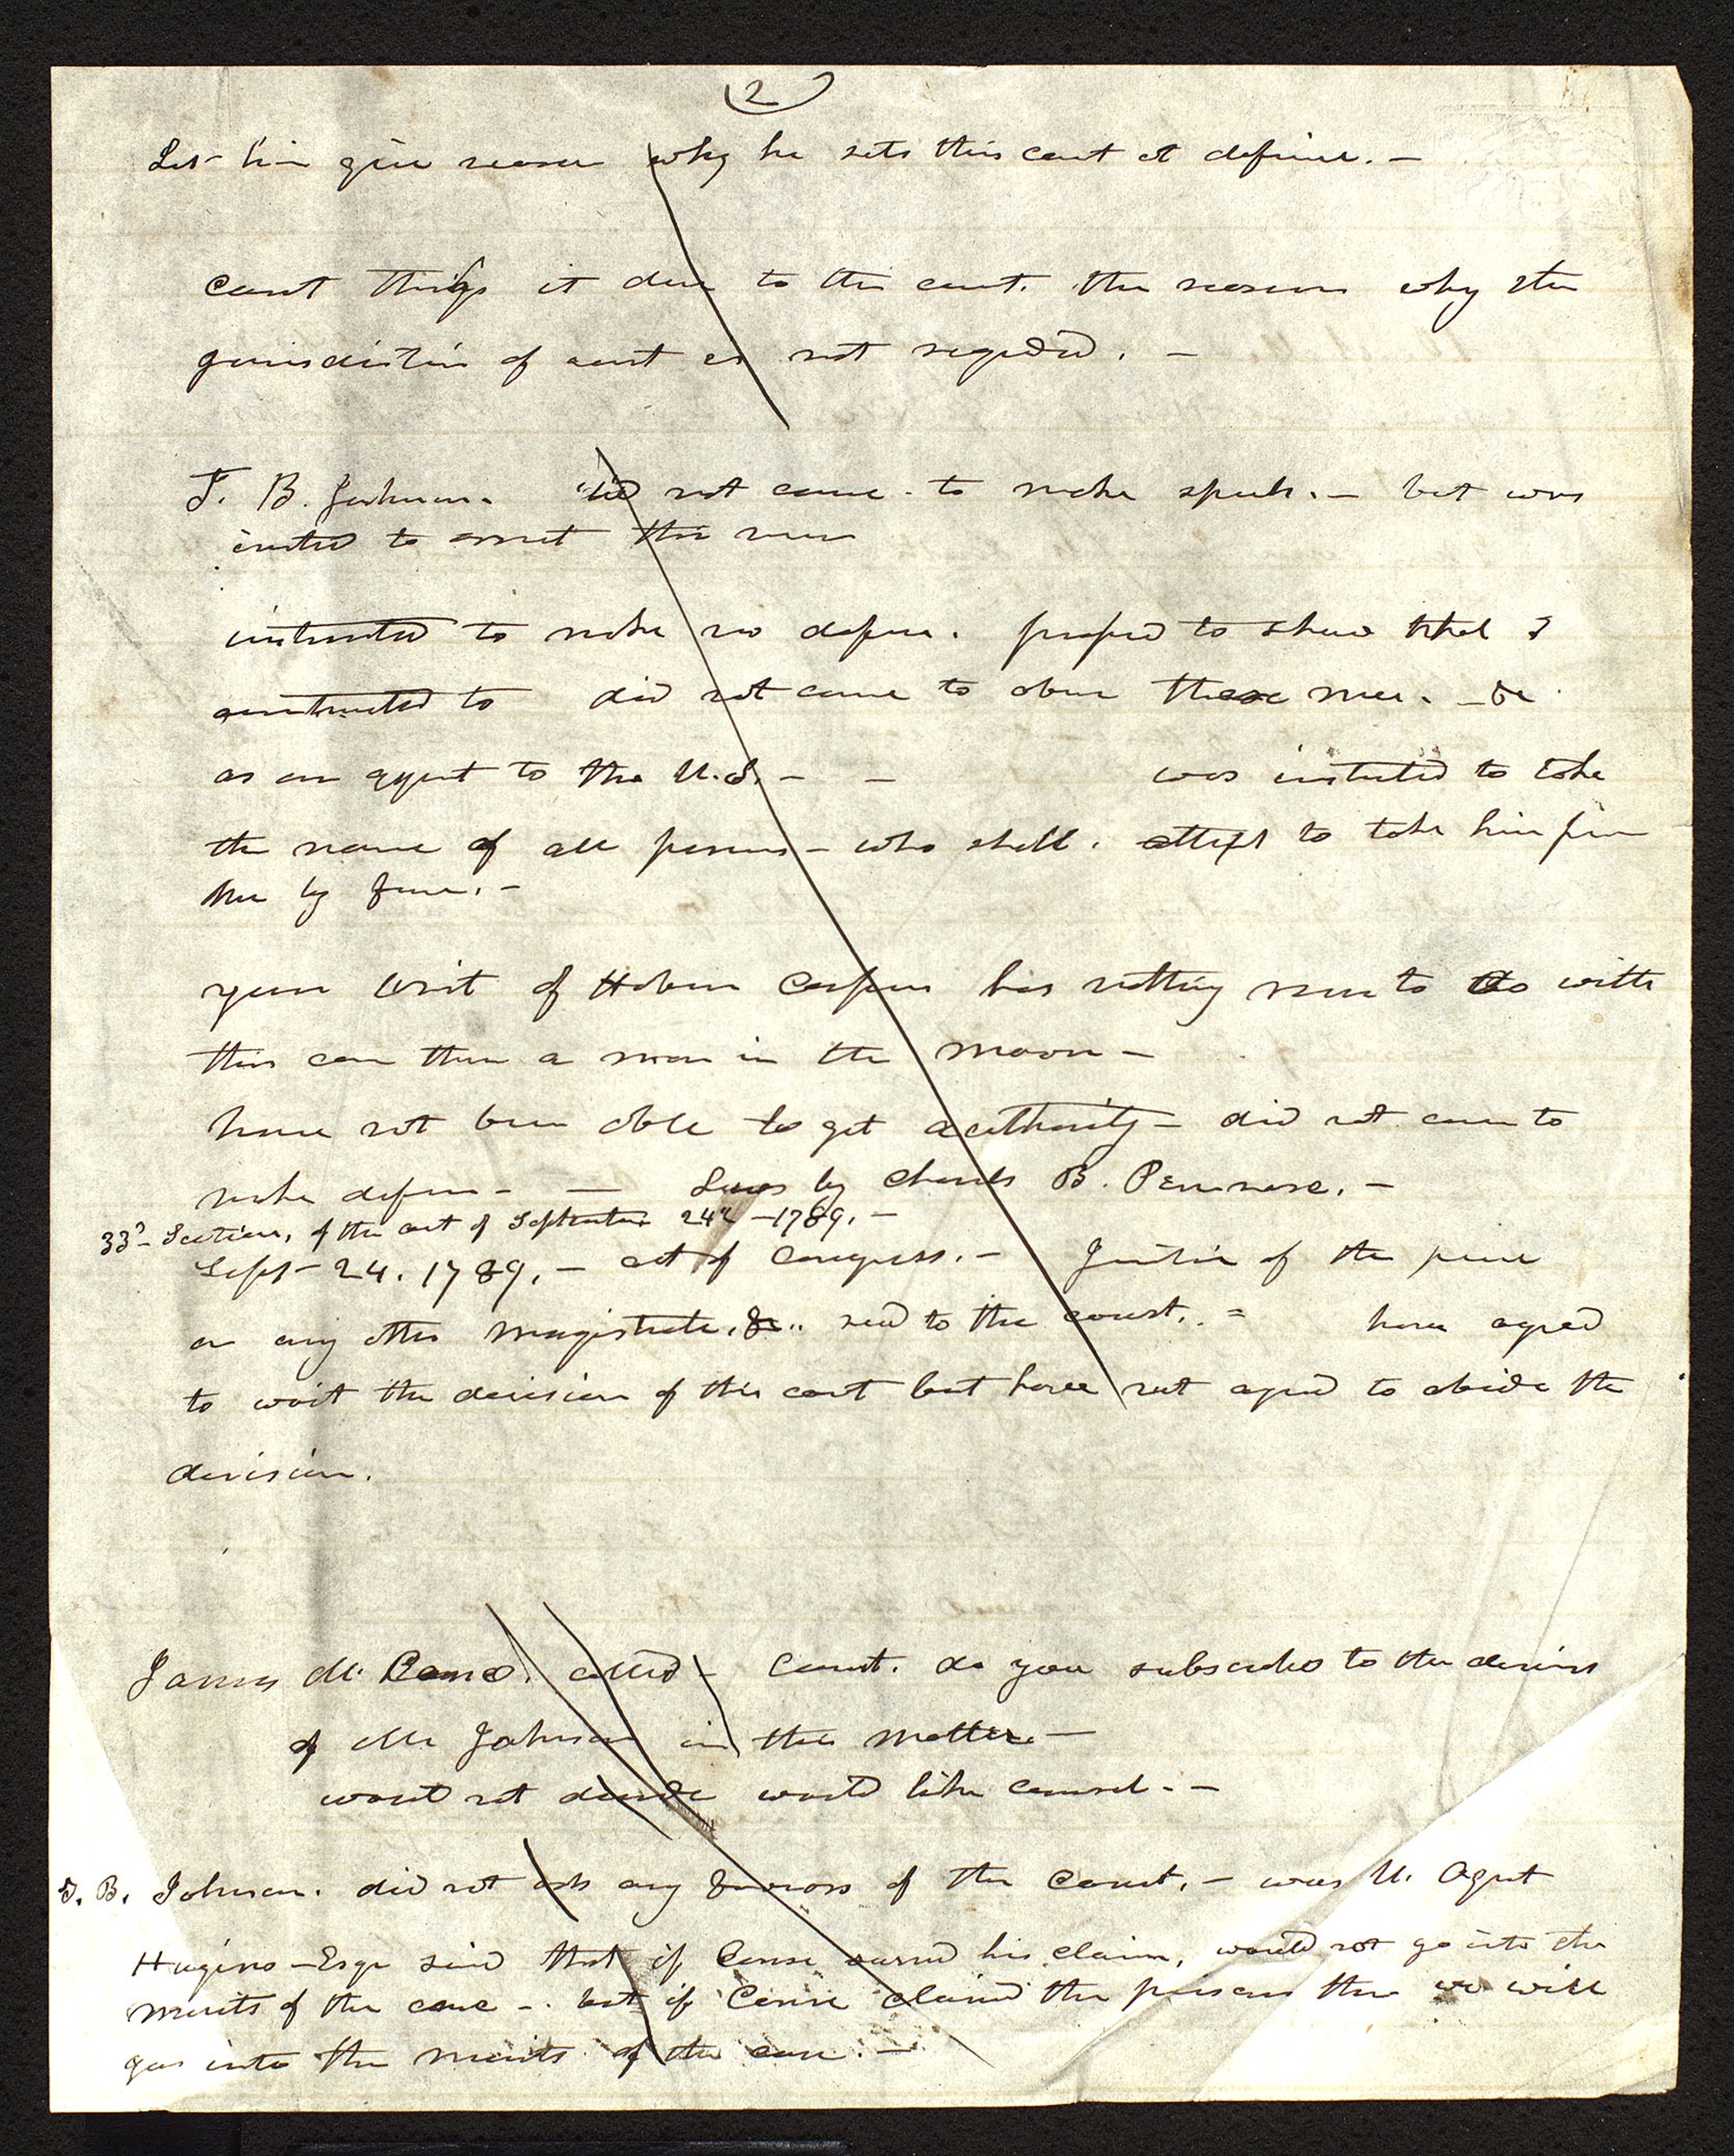 (2)
Let him give reason why he sets this court at defiance. —
Court thinks it due to the court. the reasons why the
jurisdiction of court is not regarded. —
T. B. Johnson. did not come to make speech. — but was
invited to this
instructed to make no defense. proposed to show that I
instructed to did not come to these men. — &c
as an agent to the U.S. — — was instructed to take
the name of all persons — who shall. attempt to take him from
me by force. —
your Writ of Habeas Corpus has nothing more to do with
this case than a man in the moon —
have not been able to get authority — did not come to
make defense — — Laws by Charles B. Penrose. —
33d Section, of the act of September 24th — 1789. —
Sept — 24. 1789. — act of Congress. — Justice of the peace
or any other magistrate, &c.. read to the court. = have agreed
to wait the decision of this court but have not agreed to abide the
decision.
James M. called — Court. do you subscribe to the
of Mr Johnson in this matter. —
would not decide would like counsel. —
T. B. Johnson. did not ask any favors of the Court. — was U. Agent
Hugins — Esqr said that if his claim, would not go into the
merits of the case — . but if claimed the prisoner then we will
go into the merits of the case. —